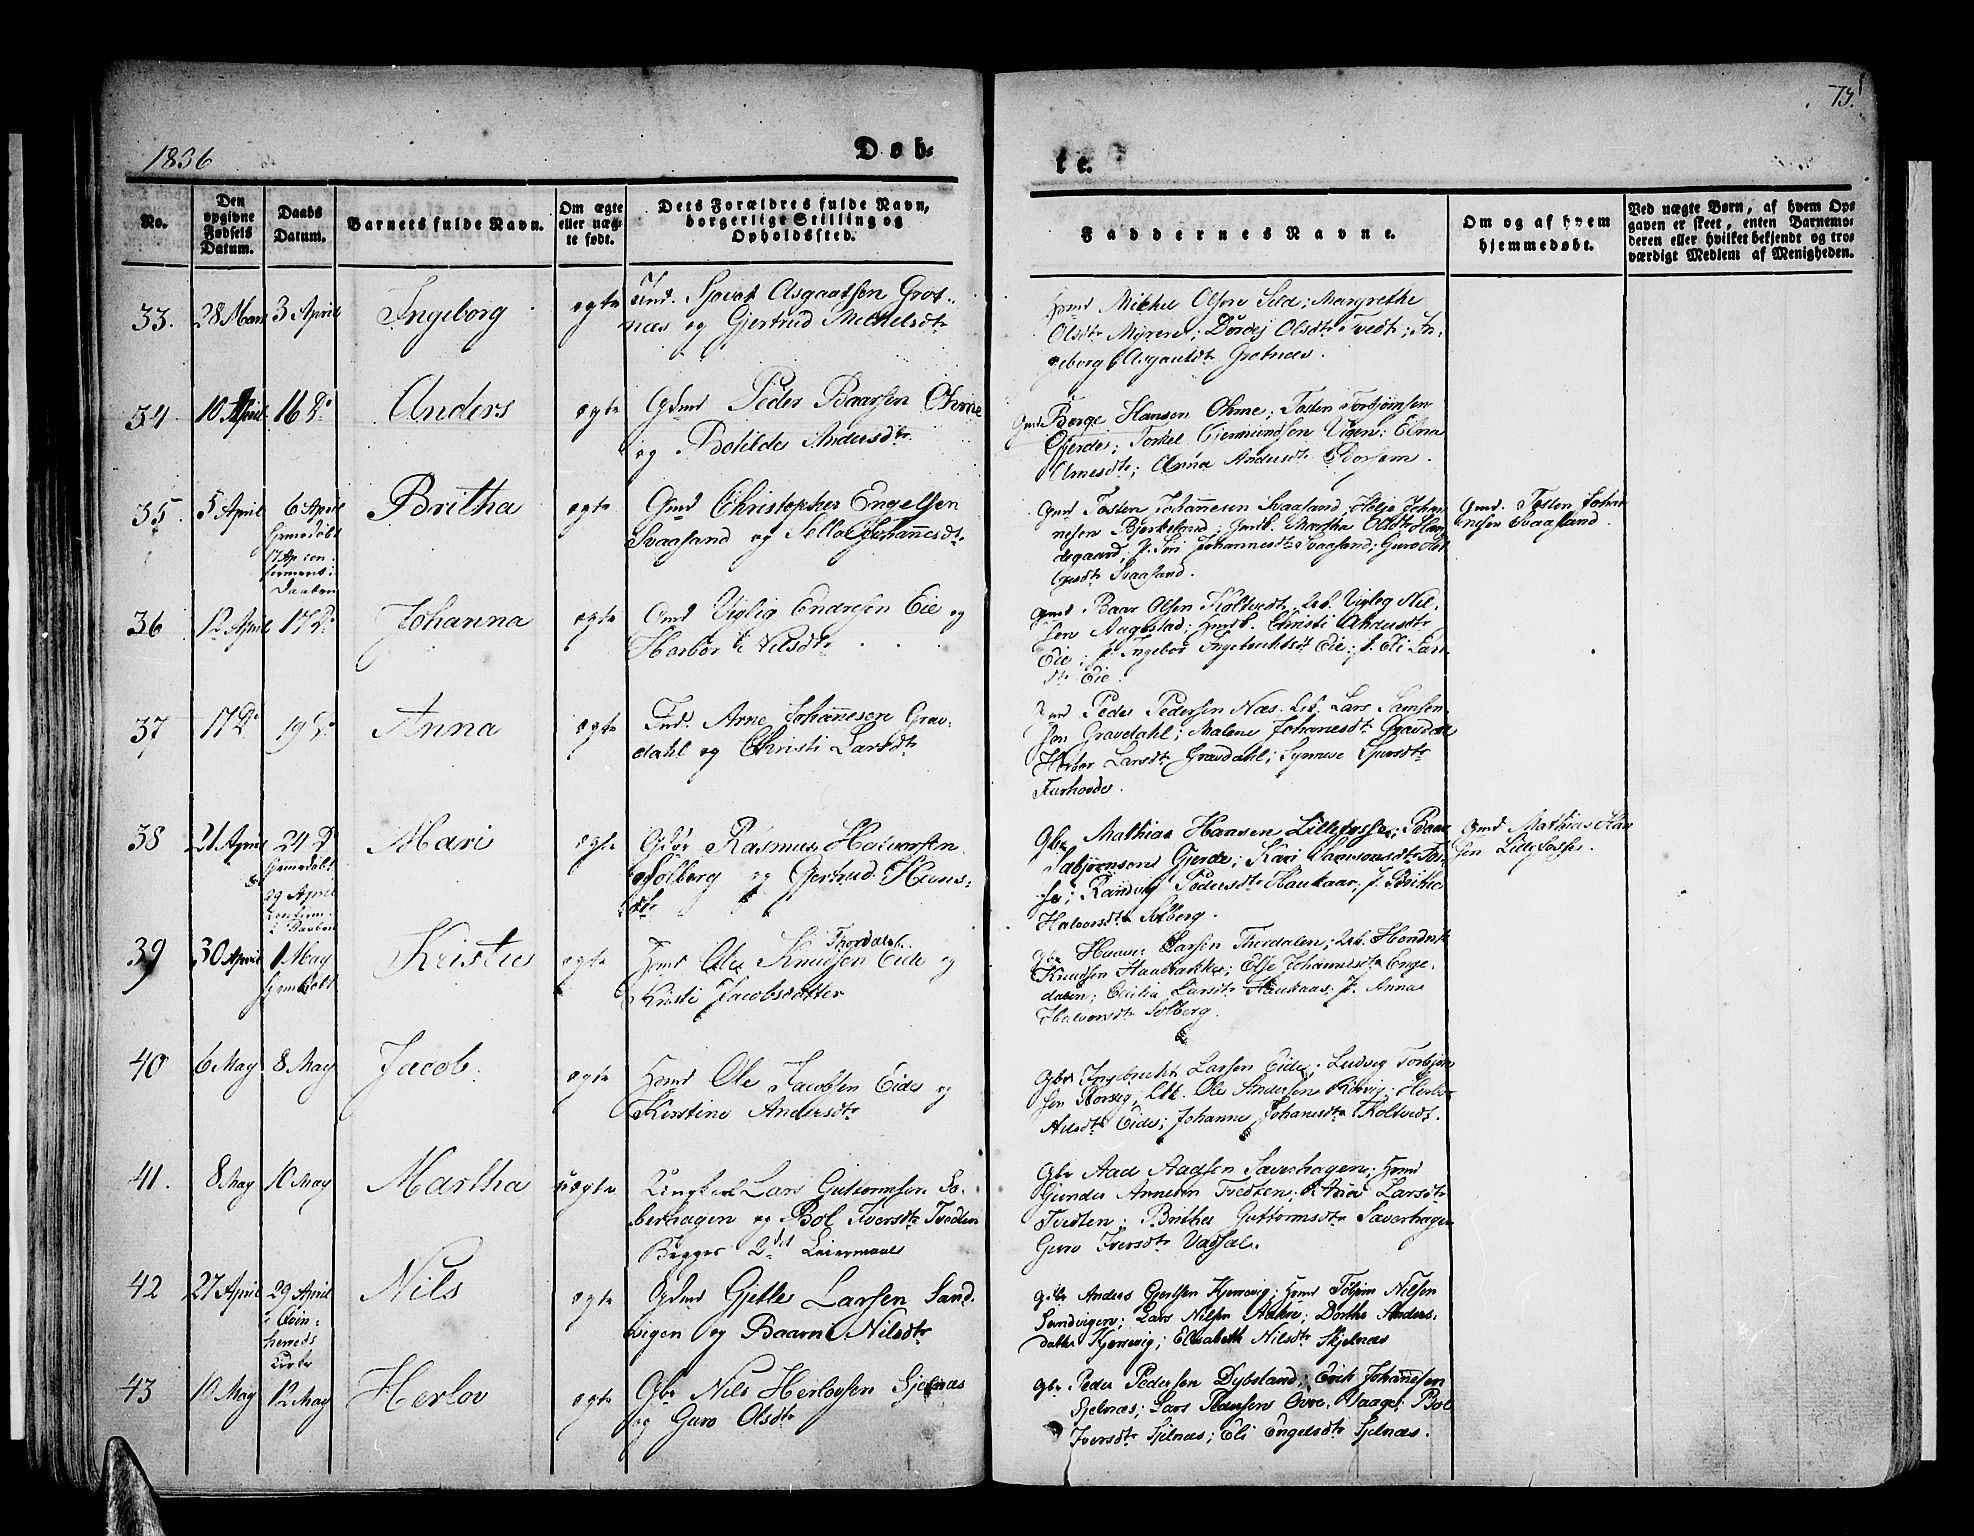 1836
Døb-
te.
73.
No.
Den opgivne Fødsels Datum.
Daabs Datum.
Barnets fulde Navn.
Om ægte eller uægte født.
Dets Forældres fulde Navn, borgerlige Stilling og Opholdssted.
Faddernes Navne.
Om og af hvem hjemmedøbt.
Ved uægte Børn, af hvem Opgaven er skeet, enten Barnemoderen eller hvilket bekjendt og troværdigt Medlem af Menigheden.
33. 28 Mars 3 April Ingeborg ægte
Asgautsen Grot-
næs og Gjertrud Michelsdtr
Michel Olsen Margrethe
Olsdtr Myrene; Olsdtr Tvedt; In-
geborg Asgautsdtr Grotnæs.
34 10 April 16 Do Anders ægte
Gdmd Peder Baarsen Ohme
og Bolilde Andersdtr
Gmd Børge Hansen Ohme; Tosten Torbjørnsen
Gjerde; Torkel Gjermundsen Vigen; Elna
Olmesdtr; Anna Andersdtr
35. 5 April 6 April Britha ægte
17 Ap con-
firmert i
Daaben
Gmd Christopher Engelsen
Svaasand og Sella Johannesdtr
Gmd Tosten Johannesen Svaasand, Helje Johan-
nesen Bjerkeland; Martha Olsdtr Han-
degaard; p. Siri Johannesdtr Svaasand; Guro Hel-
gesdtr Svaasand.
Gmd. Tosten Johan-
nesen Svaasand.
36 12 April 17 Do Johanna ægte
Gmd Vigleg Endresen Eie og
Herbor Nilsdtr
Gmd Baar Olsen Koltvedt, Vigleg Nil-
sen Aagestad; Christi
Eie; p. Ingebor Ingebrichtsdt Eie; p. Eli Lars-
dtr Eie.
37 17 Do 19 Do Anna ægte
Arne Johannesen Grav-
dahl og Christi Larsdtr
Peder Pedersen Næs. Lars Samson-
sen Gravedahl; Malene Johannesdtr Gravdal
Herbor Larsdtr Gravdahl; Synneve Sjursdtr
38 21 April 24 Do Mari ægte
29 April
i Daaben
Rasmus Halvorsen
Solberg og Gertrud Hans-
dtr
Gbr Mathias Hansen Lillefosse; Baar
Torbjørnsen Gjerde; Kari Samsonsdtr Fos-
se; Randvig Pedersdtr Haukaas, p. Britha
Halvorsdtr Solberg.
Gmd Mathias Han-
sen Lillefosse.
39 30 April 1 May Kristi ægte
Thordalen
Hmd Ole Knudsen Eide og
Kristi Jacobsdatter
Gbr Hans Larsen Thordalen;
Knudsen Haabrække; Else Johannesdtr Enge-
dalen; Cicilia Larsdtr Haukaas. p. Anna
Halvorsdtr Solberg.
40 6 May 8 May Jacob. ægte
Hmd Ole Jacobsen Eide og
Kirstine Andersdtr
Gbr Ingebricht Larsen Eide; Ludvig Torbjørn-
sen Norvig, Ole Andersen Herbor
Nilsdtr Eide; Johanne Johannesdtr Koltvedt.
41. 8 May 10 May Martha uægte
Ungkarl Lars Guttormsen Sa-
verhagen og Bol Iversdtr Tvedten
Begges 2det Leiermaal
Gbr Aad Aadsen Saverhagen; Hmd
Gunder Arnesen Tvedten; Larsdtr
Tvedten; Britha Guttormsdtr Saverhagen
Guro Iversdtr
42 27 April 29 April Nils ægte
i Qvin-
herreds
Kirke
Gdmd Gjetle Larsen Sand-
vigen og Baarni Nilsdtr
Gbr Anders Gjertsen Kjerrevig; Hmd Nilsen
Sandvigen; Lars Nilsen Aakre; Dorthe Anders-
datter Kjerrevig; Elisabeth Nilsdtr Skjelnæs
43 10 May 12 May Herlov ægte
Gbr Nils Herlovsen Sjelnæs
og Guro Olsdtr
Gbr Peder Pedersen Dybsland; Erich Johannesen
Sjelnæs; Lars Pedersen Øvre-Vaage; Bol
Iversdtr Sjelnæs; Eli Engelsdtr Sjelnæs.